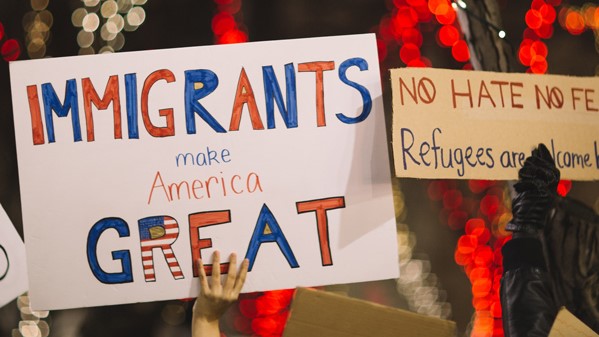 IMMIGRANTS
make
America
GREAT
NO HATE NO
Refugees are